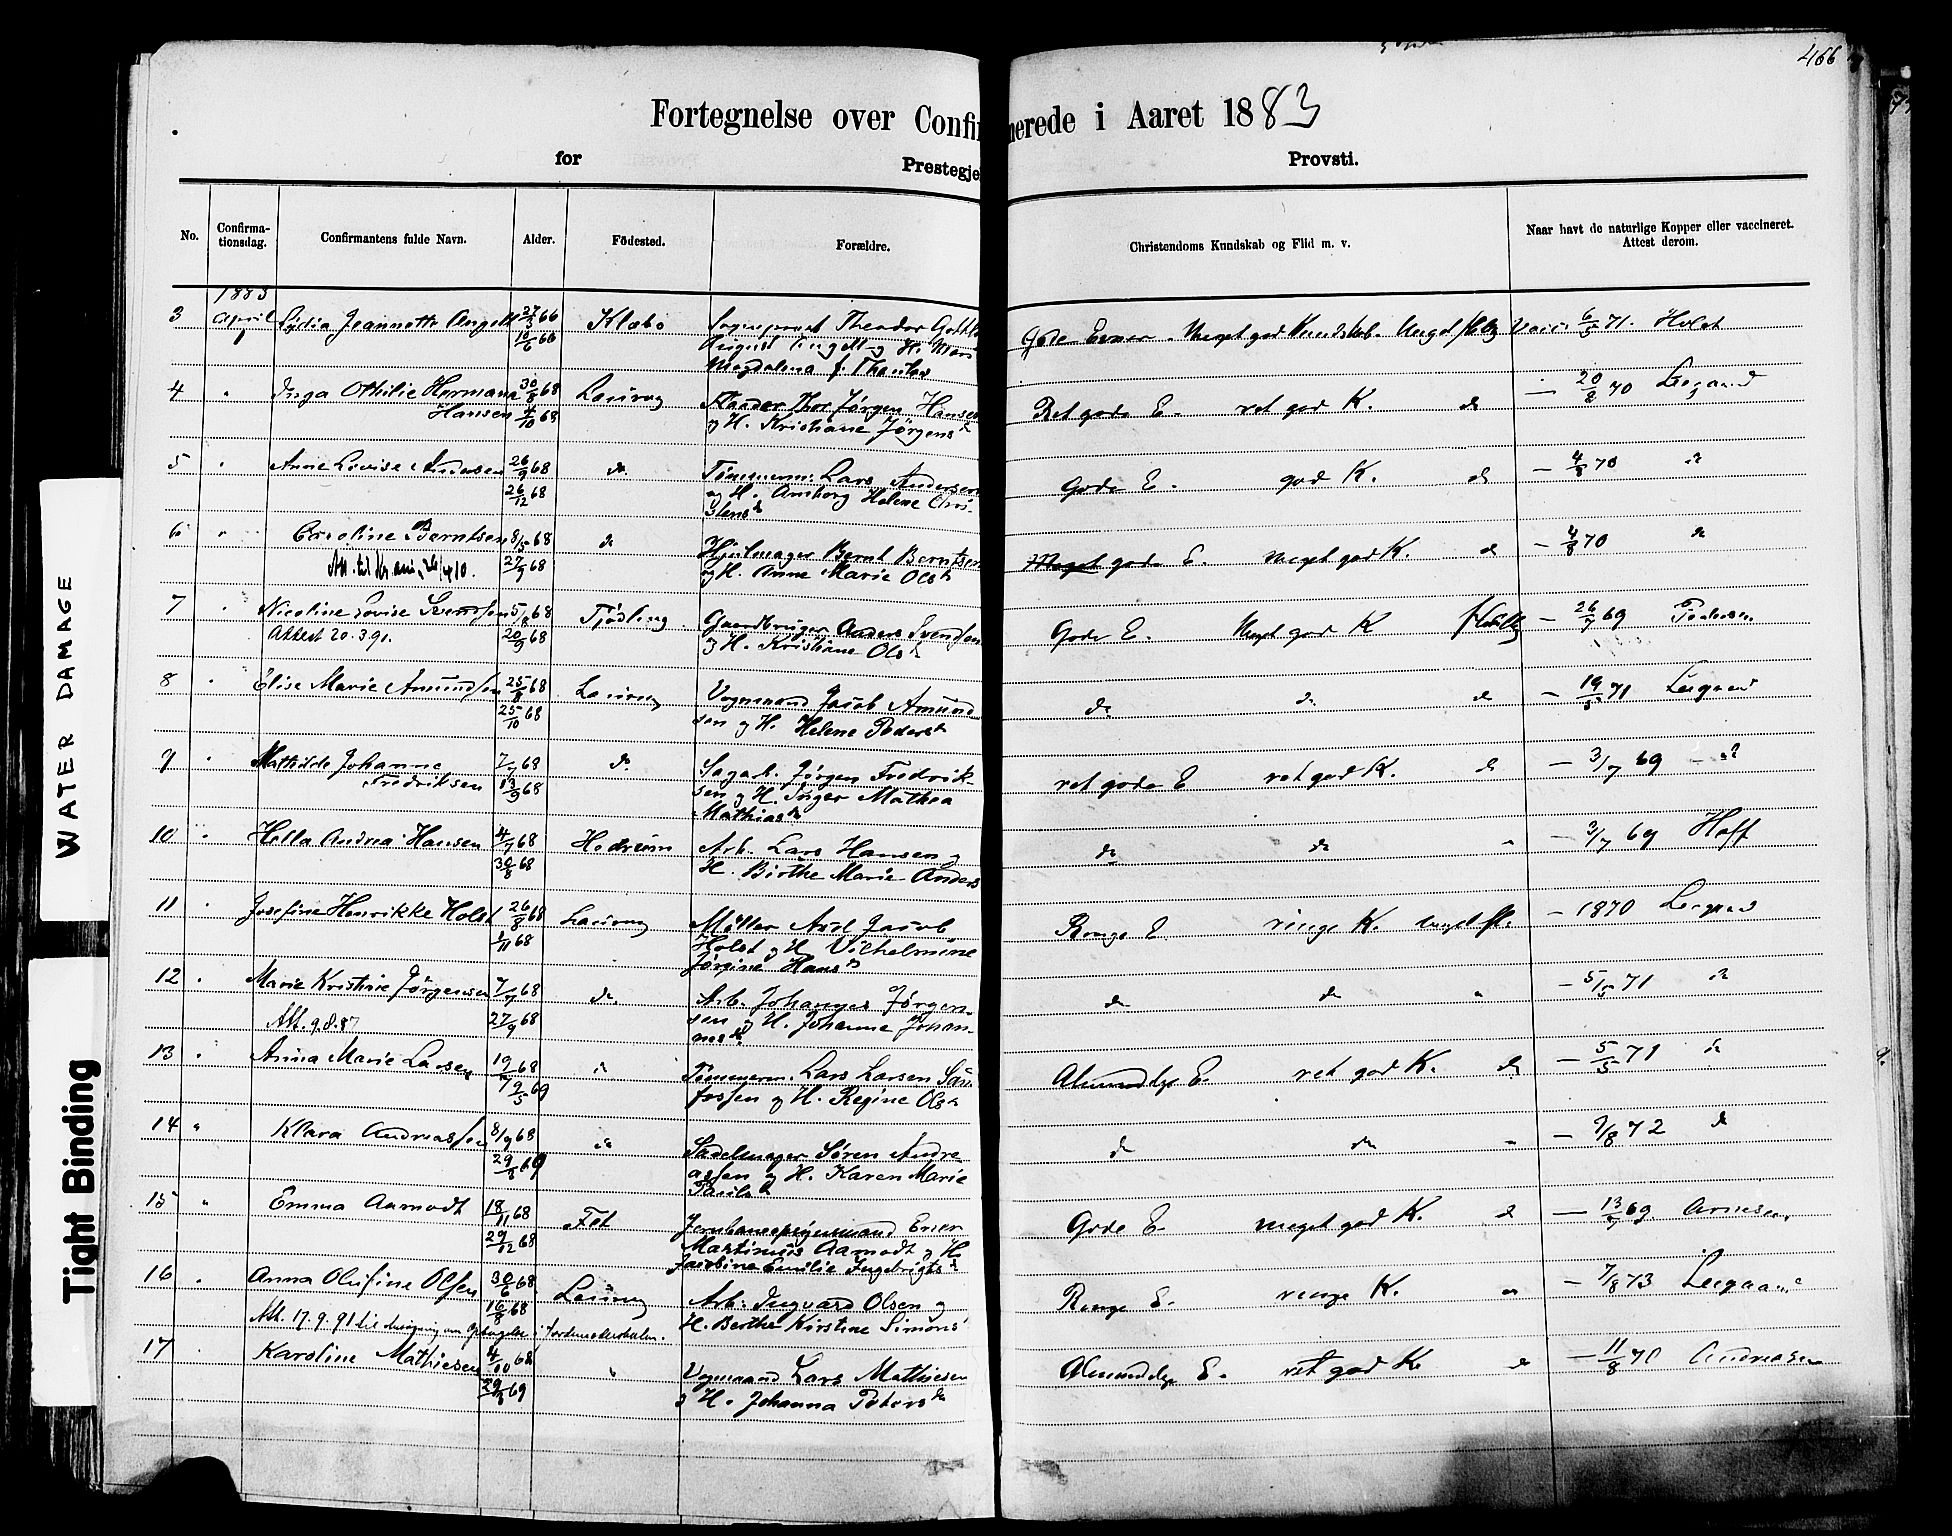 466
Fortegnelse over Confirmerede i Aaret 1883
for Prestegje Provsti.
No. Confirma-tionsdag. Confirmantens fulde Navn. Alder. Födested. Forældre. Christendoms Kundskab og Flid m. v. Naar havt de naturlige Kopper eller vaccineret. Attest derom.
1883
3 April Lydia Jeannette Angell 27/3 66 Klæbo Sogneprest Theodor
1 10/6 66 August Angell og H.
Magdalena f. Gode Evner. Meget god Kundskab. Meget flittig Vacc. 6/5 71. Holst
4 " Inga Othilie Hermana 30/8 68 Laurvig Jørgen Hansen
Hansen 4/10 68 og H. Kristiane Jørgensd Ret gode E. ret god K. do — 20/8 70 Leegaard
5 " Anne Lovise Andersen 26/9 68 do Tömmerm. Lars Andersen
26/12 68 og H. Anborg Helene Chri-
stensd Gode E. god K. do — 4/8 70 do
6 " Caroline Berntsen 8/5 68 do Hjulmager Bernt Berntsen
27/9 68 og H. Anne Marie Olsd Meget gode E. meget god K. do — 4/8 70 do
7 " Nicoline Lovise Svendsen 5/8 68 Tjødling Gaardbruger Anders Svendsen
Attest 20.3 91. 20/9 68 og H. Kristiane Olsd Gode E. Meget god K flittig — 26/7 69 Pedersen
8 " Elise Marie Amundsen 25/8 68 Laurvig Vognmand Jacob Amund-
25/10 68 sen og H. Helene Pedersd do do do — 19/5 71 Leegaard
9 " Mathilde Johanne 7/7 68 do Sagarb. Jørgen Fredrik-
Fredriksen 13/9 68 sen og H. Inger Mathea
Mathiasd ret gode E ret god K. do — 3/7 69 — do
10 " Hella Andrea Hansen 4/7 68 Hedrum Arb. Lars Hansen og
30/8 68 H. Birthe Marie Anders do do " — 3/7 69 Hoff
11 " Josefine Henrikke Holst 26/8 68 Laurvig Møller Jacob
1/11 68 Holst og H. Vilhelmine
Jørgine Hansd Ringe E ringe K. meget fl. — 1870 Leegaard
12 " Marie Kristine Jørgensen 7/7 68 do Arb. Johannes Jørgen-
Att. 9.8.87 27/9 68 sen og H. Johanne Johan-
nesd do do " — 5/5 71 do
13 " Anna Marie Larsen 19/7 68 do Tömmerm. Lars Larsen
9/5 69 og H. Regine Olsd Almindelige E. ret god K. do — 5/5 71 do
14 " Klara Andreassen 8/9 68 do Sadelmager Søren Andre-
29/8 69 assen og H. Karen Marie
Paulsd do do " — 9/8 72 do
15 " Emma Aamodt 18/11 68 Fet Ener
29/12 68 Martinius Aamodt og H.
Jacobine Emilie Ingebrigtsd Gode E. meget god K. do — 13/7 69 Arnesen
16 " Anna Olufine Olsen 30/6 68 Laurvig Arb. Ingvard Olsen og
16/8 68 H. Berthe Kirstine Simons
Att. 17.9.91 til Ringe E. ringe K. " — 7/8 73 Leegaard
17 " Karoline Mathiesen 4/10 68 " Vognmand Lars Mathiesen
29/8 69 og H. Johanna Petersd Almindelige E. ret god K. do — 11/8 70 Andreasen
WATER DAMAGE
Tight Binding